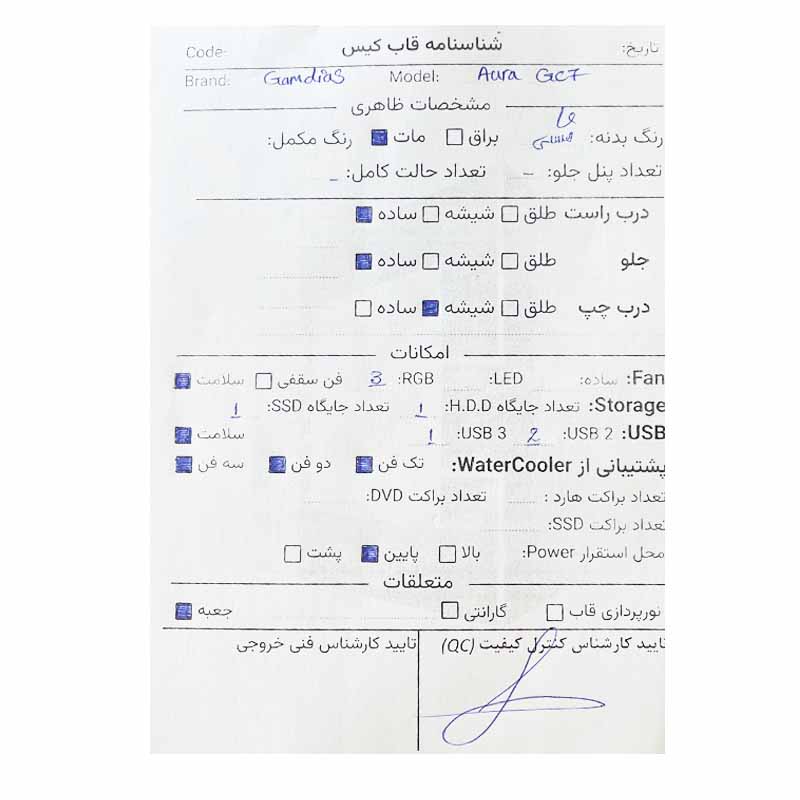 شناسنامه قاب کیس
تاریخ: Code:
Brand: Gamdias Model: Aura GC7
مشخصات ظاهری
رنگ بدنه: براق مات رنگ مکمل:
تعداد پنل جلو: - تعداد حالت کامل: -
درب راست طلق شیشه ساده
جلو طلق شیشه ساده
درب چپ طلق شیشه ساده
امکانات
Fan: ساده: LED: RGB: 3 فن سقفی سلامت
Storage: تعداد جایگاه H.D.D: 1 تعداد جایگاه SSD: 1
USB: USB 2: 2 USB 3: 1 سلامت
پشتیبانی از WaterCooler: تک فن دو فن سه فن
تعداد براکت هارد : تعداد براکت DVD:
تعداد براکت SSD:
محل استقرار Power: بالا پایین پشت
متعلقات
نورپردازی قاب گارانتی جعبه
تایید کارشناس کنترل کیفیت (QC) تایید کارشناس فنی خروجی